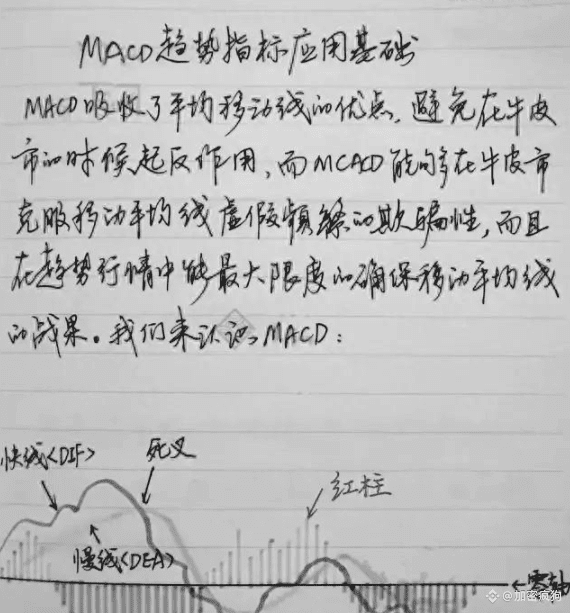 MACD趋势指标应用基础
MACD吸收了平均移动线的优点,避免在牛皮
市的时候起反作用,而MCACD能够在牛皮市
克服移动平均线虚假频繁的欺骗性,而且
在趋势行情中能最大限度的确保移动平均线
的战果。我们来认识MACD:
快线<DIF>
死叉
红柱
慢线<DEA>
←零轴
@加密疯狗